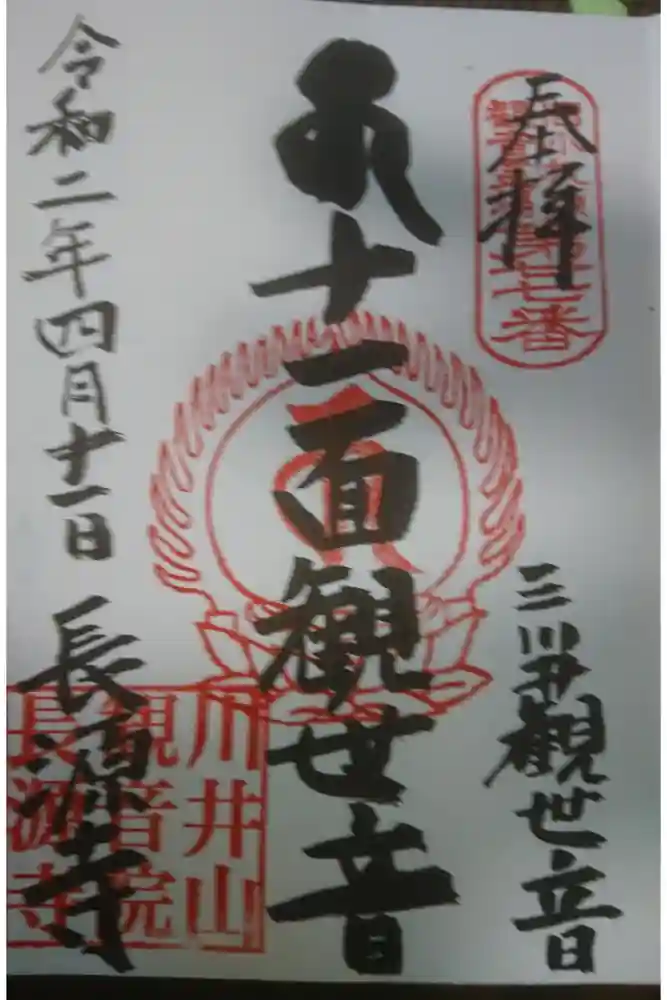 奉拝
第七番
十一面観世音
三川井観世音
令和二年四月十一日
長源寺
川井山
観音院
長源寺